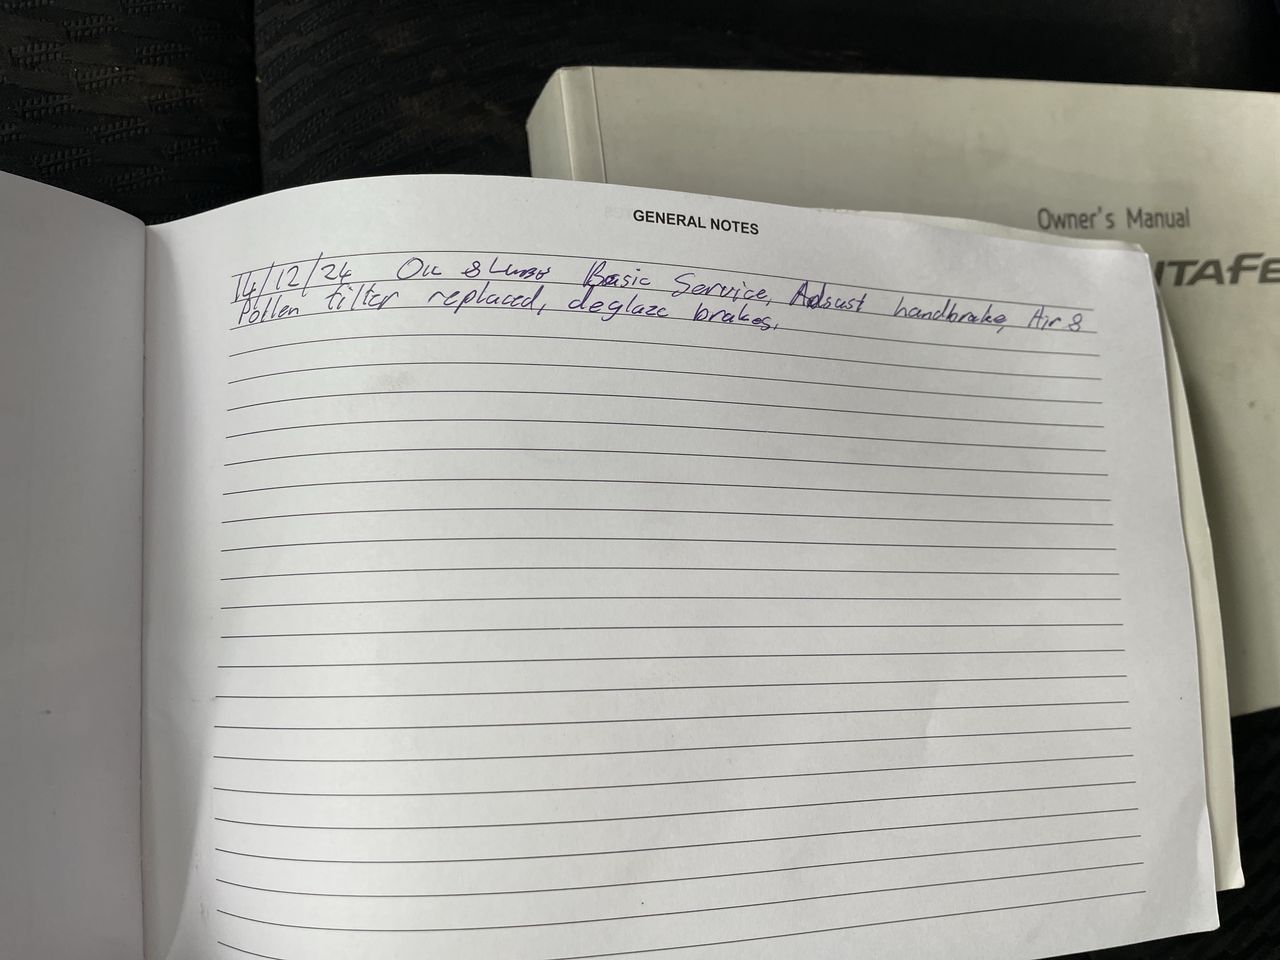 Owner's Manual
NTAFE
GENERAL NOTES
14/12/24 Basic Service, Adjust handbrake, Air &
Pollen filter replaced, deglaze brakes.